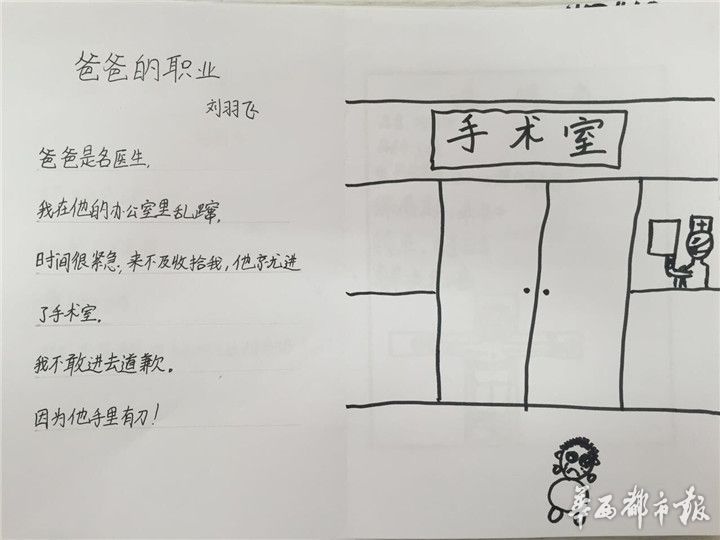 爸爸的职业
刘羽飞
爸爸是名医生,
我在他的办公室里乱蹿,
时间很紧急,来不及收拾我,他就进
了手术室。
我不敢进去道歉。
因为他手里有刀!
手术室
华西都市报